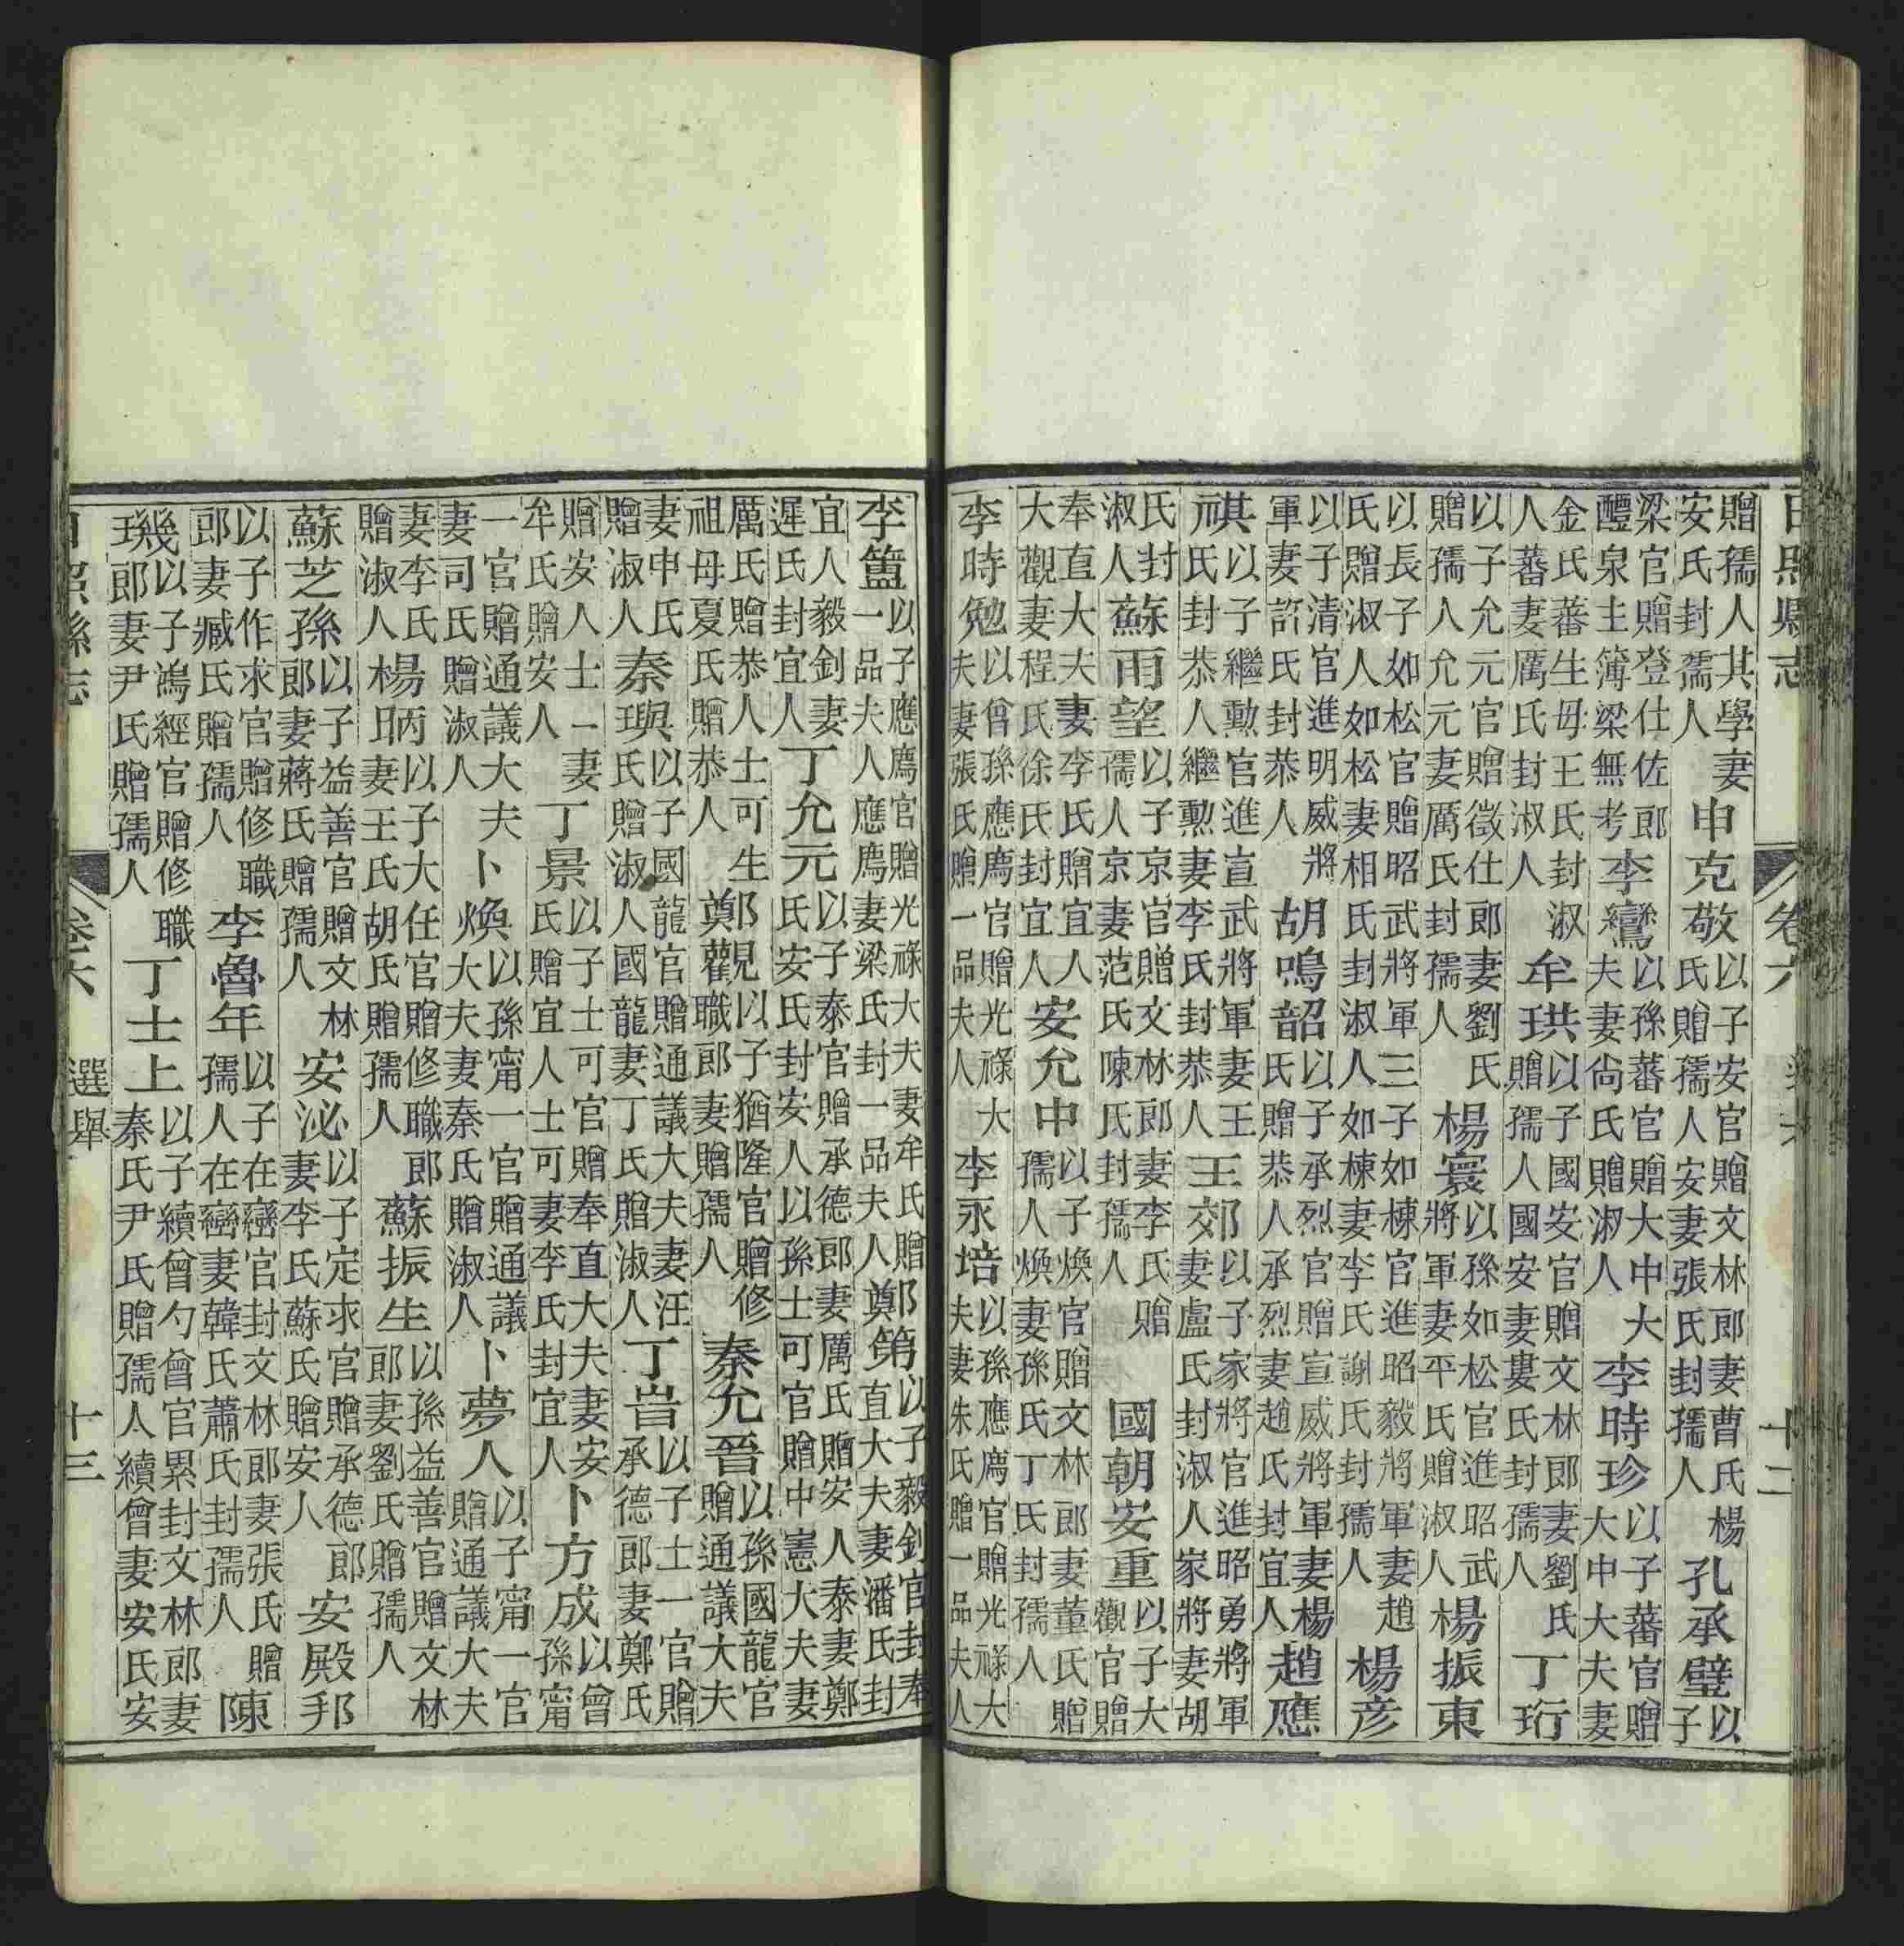 日照縣志 卷六 十二
贈孺人其學妻安氏封孺人申克敬以子安官贈文林郎妻曹氏楊氏贈孺人安妻張氏封孺人孔承璧以子
梁官贈登仕佐郎醴泉主簿梁無考李鸞以孫蕃官贈大中大夫妻尙氏贈淑人李時珍以子蕃官贈大中大夫妻
金氏蕃生母王氏封淑人蕃妻厲氏封淑人牟珙以子國安官贈文林郎妻劉氏贈孺人國安妻婁氏封孺人丁珩
以子允元官贈徵仕郎妻劉氏贈孺人允元妻厲氏封孺人楊寰以孫如松官進昭武將軍妻平氏贈淑人楊振東
以長子如松官贈昭武將軍三子如棟官進昭毅將軍妻趙氏贈淑人如松妻相氏封淑人如棟妻李氏謝氏封孺人楊彦
以子清官進明威將軍妻許氏封恭人胡鳴韶以子承烈官贈宣威將軍妻楊氏贈恭人承烈妻趙氏封宜人趙應
祺以子繼勳官進宣武將軍妻王氏封恭人繼勳妻李氏封恭人王郊以子家將官進昭勇將軍妻盧氏封淑人家將妻胡
氏封淑人蘇雨望以子京官贈文林郎妻李氏贈孺人京妻范氏陳氏封孺人國朝安重以子大觀官贈
奉直大夫妻李氏贈宜人大觀妻程氏徐氏封宜人安允中以子煥官贈文林郎妻董氏贈孺人煥妻孫氏丁氏封孺人
李時勉以曾孫應廌官贈光祿大夫妻張氏贈一品夫人李永培以孫應廌官贈光祿大夫妻朱氏贈一品夫人
李簠以子應廌官贈光祿大夫妻牟氏贈一品夫人應廌妻梁氏封一品夫人鄭第以子毅釗官封奉直大夫妻潘氏封
宜人毅釗妻遲氏封宜人丁允元以子泰官贈承德郎妻厲氏贈安人泰妻鄭氏安氏封安人以孫士可官贈中憲大夫妻
厲氏贈恭人士可生祖母夏氏贈恭人鄭觀以子猶隆官贈修職郎妻贈孺人秦允晉以孫國龍官贈通議大夫
妻申氏贈淑人秦璵以子國龍官贈通議大夫妻汪氏贈淑人國龍妻丁氏贈淑人丁峕以子士一官贈承德郎妻鄭氏
贈安人士一妻牟氏贈安人丁景以子士可官贈奉直大夫妻安氏贈宜人士可妻李氏封宜人卜方成以曾孫甯
一官贈通議大夫妻司氏贈淑人卜煥以孫甯一官贈通議大夫妻秦氏贈淑人卜夢人以子甯一官贈通議大夫
妻李氏贈淑人楊昞以子大任官贈修職郎妻王氏胡氏贈孺人蘇振生以孫益善官贈文林郎妻劉氏贈孺人
蘇芝孫以子益善官贈文林郎妻蔣氏贈孺人安泌以子定求官贈承德郎妻李氏蘇氏贈安人安殿邦
以子作求官贈修職郎妻臧氏贈孺人李魯年以子在巒官封文林郎妻張氏贈孺人在巒妻韓氏蕭氏封孺人陳
璣以子鴻經官贈修職郎妻尹氏贈孺人丁士上以子續曾勺曾官累封文林郎妻秦氏尹氏贈孺人續曾妻安氏安
日照縣志 卷六 選舉 十三